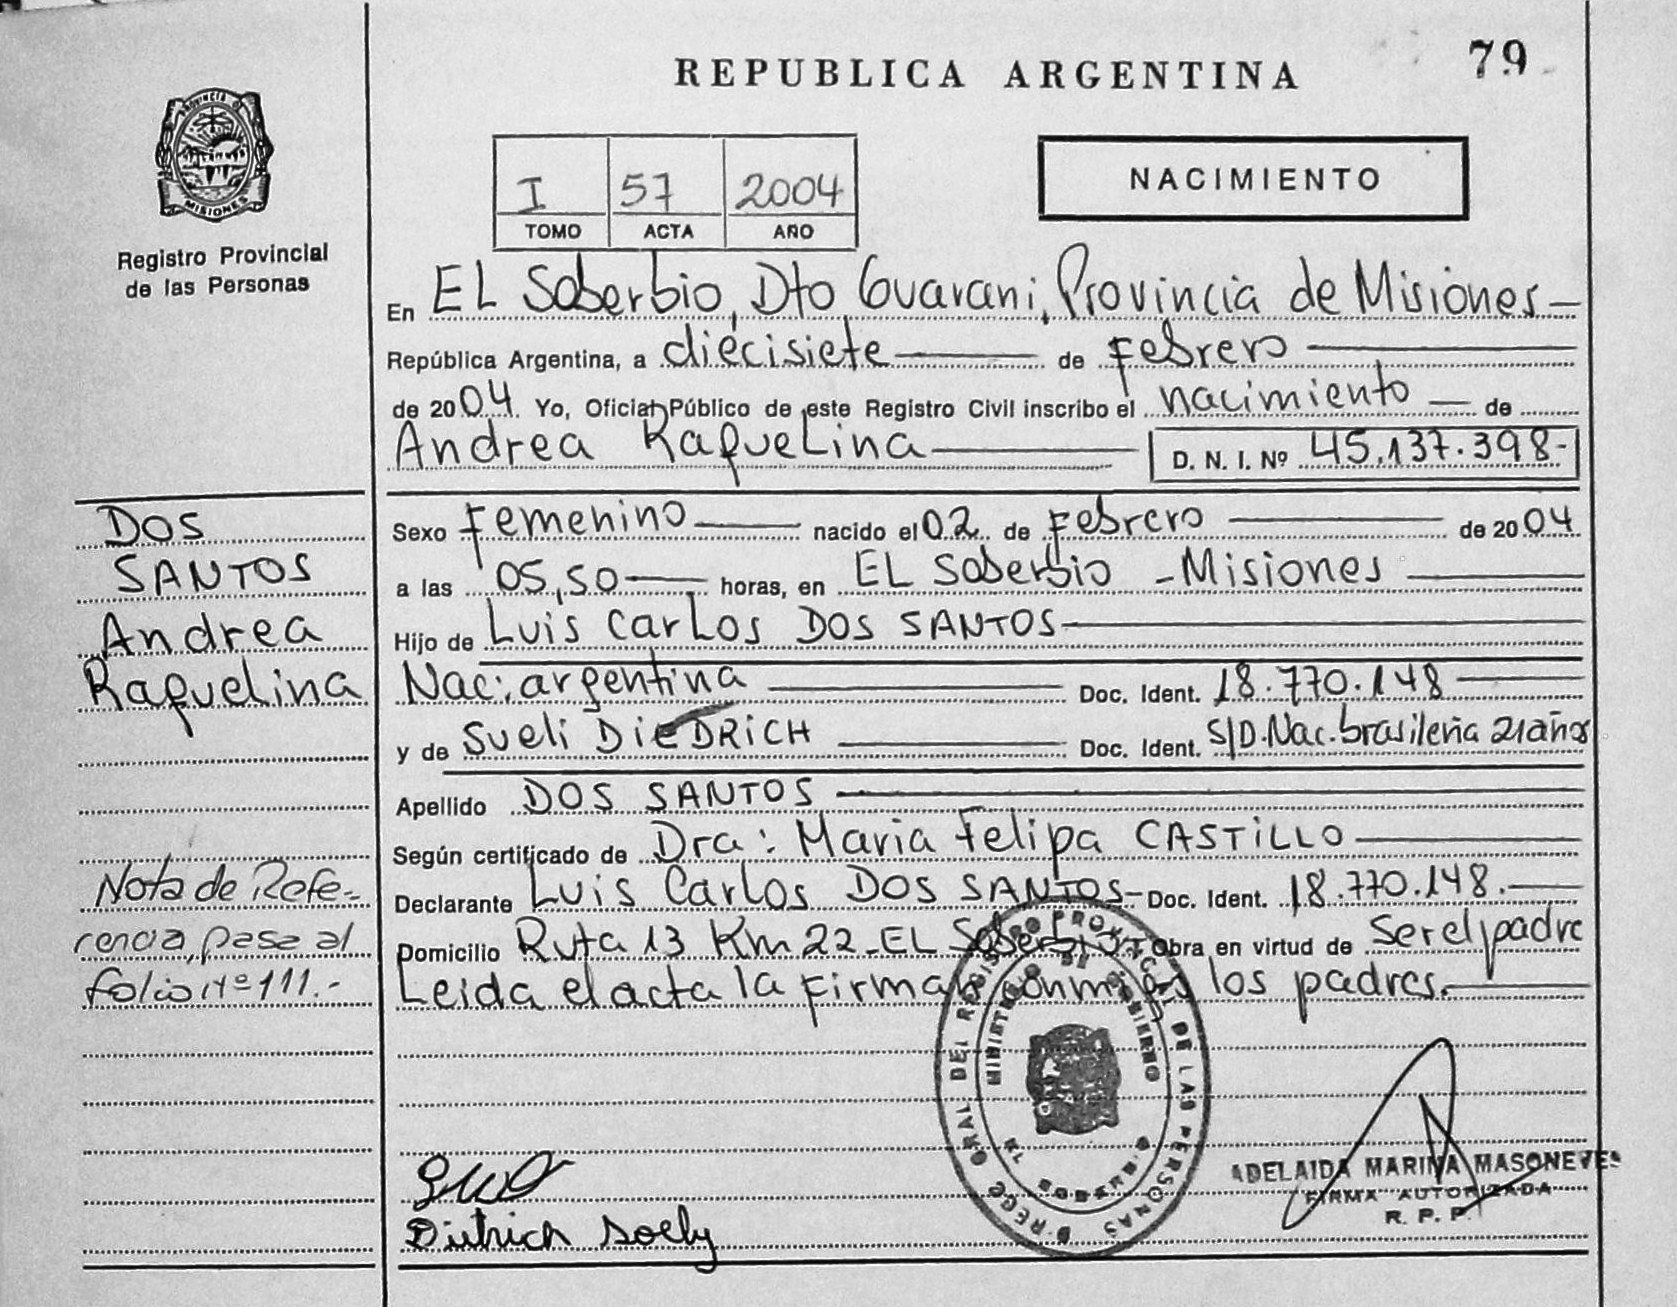 79
REPUBLICA ARGENTINA
PROVINCIA DE
MISIONES
Registro Provincial
de las Personas
I 57 2004
TOMO ACTA AÑO
NACIMIENTO
En EL Soberbio, Dto Guarani, Provincia de Misiones
República Argentina, a diecisiete de Febrero
de 2004. Yo, Oficial Público de este Registro Civil inscribo el nacimiento de
Andrea Raquelina D. N. I. Nº 45.137.398-
Sexo Femenino nacido el 02 de Febrero de 2004
a las 05,50 horas, en EL Soberbio - Misiones
Hijo de Luis Carlos DOS SANTOS
Nac: argentina Doc. Ident. 18.770.148
y de Sueli DiEDRiCH Doc. Ident. S/D. Nac. brasileña 21 años
Apellido DOS SANTOS
Según certificado de Dra: Maria Felipa CASTiLLO
Declarante Luis Carlos DOS SANTOS- Doc. Ident. 18.770.148.
Domicilio Ruta 13 Km 22-EL Soberbio Obra en virtud de Ser el padre
Leida el acta la firman conmigo los padres.
DOS
SANTOS
Andrea
Raquelina
Nota de Refe-
rencia, pasa al
folio Nº 111.-
DIRECC. GRAL DEL REGISTRO PROVINCIAL DE LAS PERSONAS
MINISTERIO DE GOBIERNO
Dietrich Soely
ADELAIDA MARINA MASONEVES
FIRMA AUTORIZADA
R. P. P.